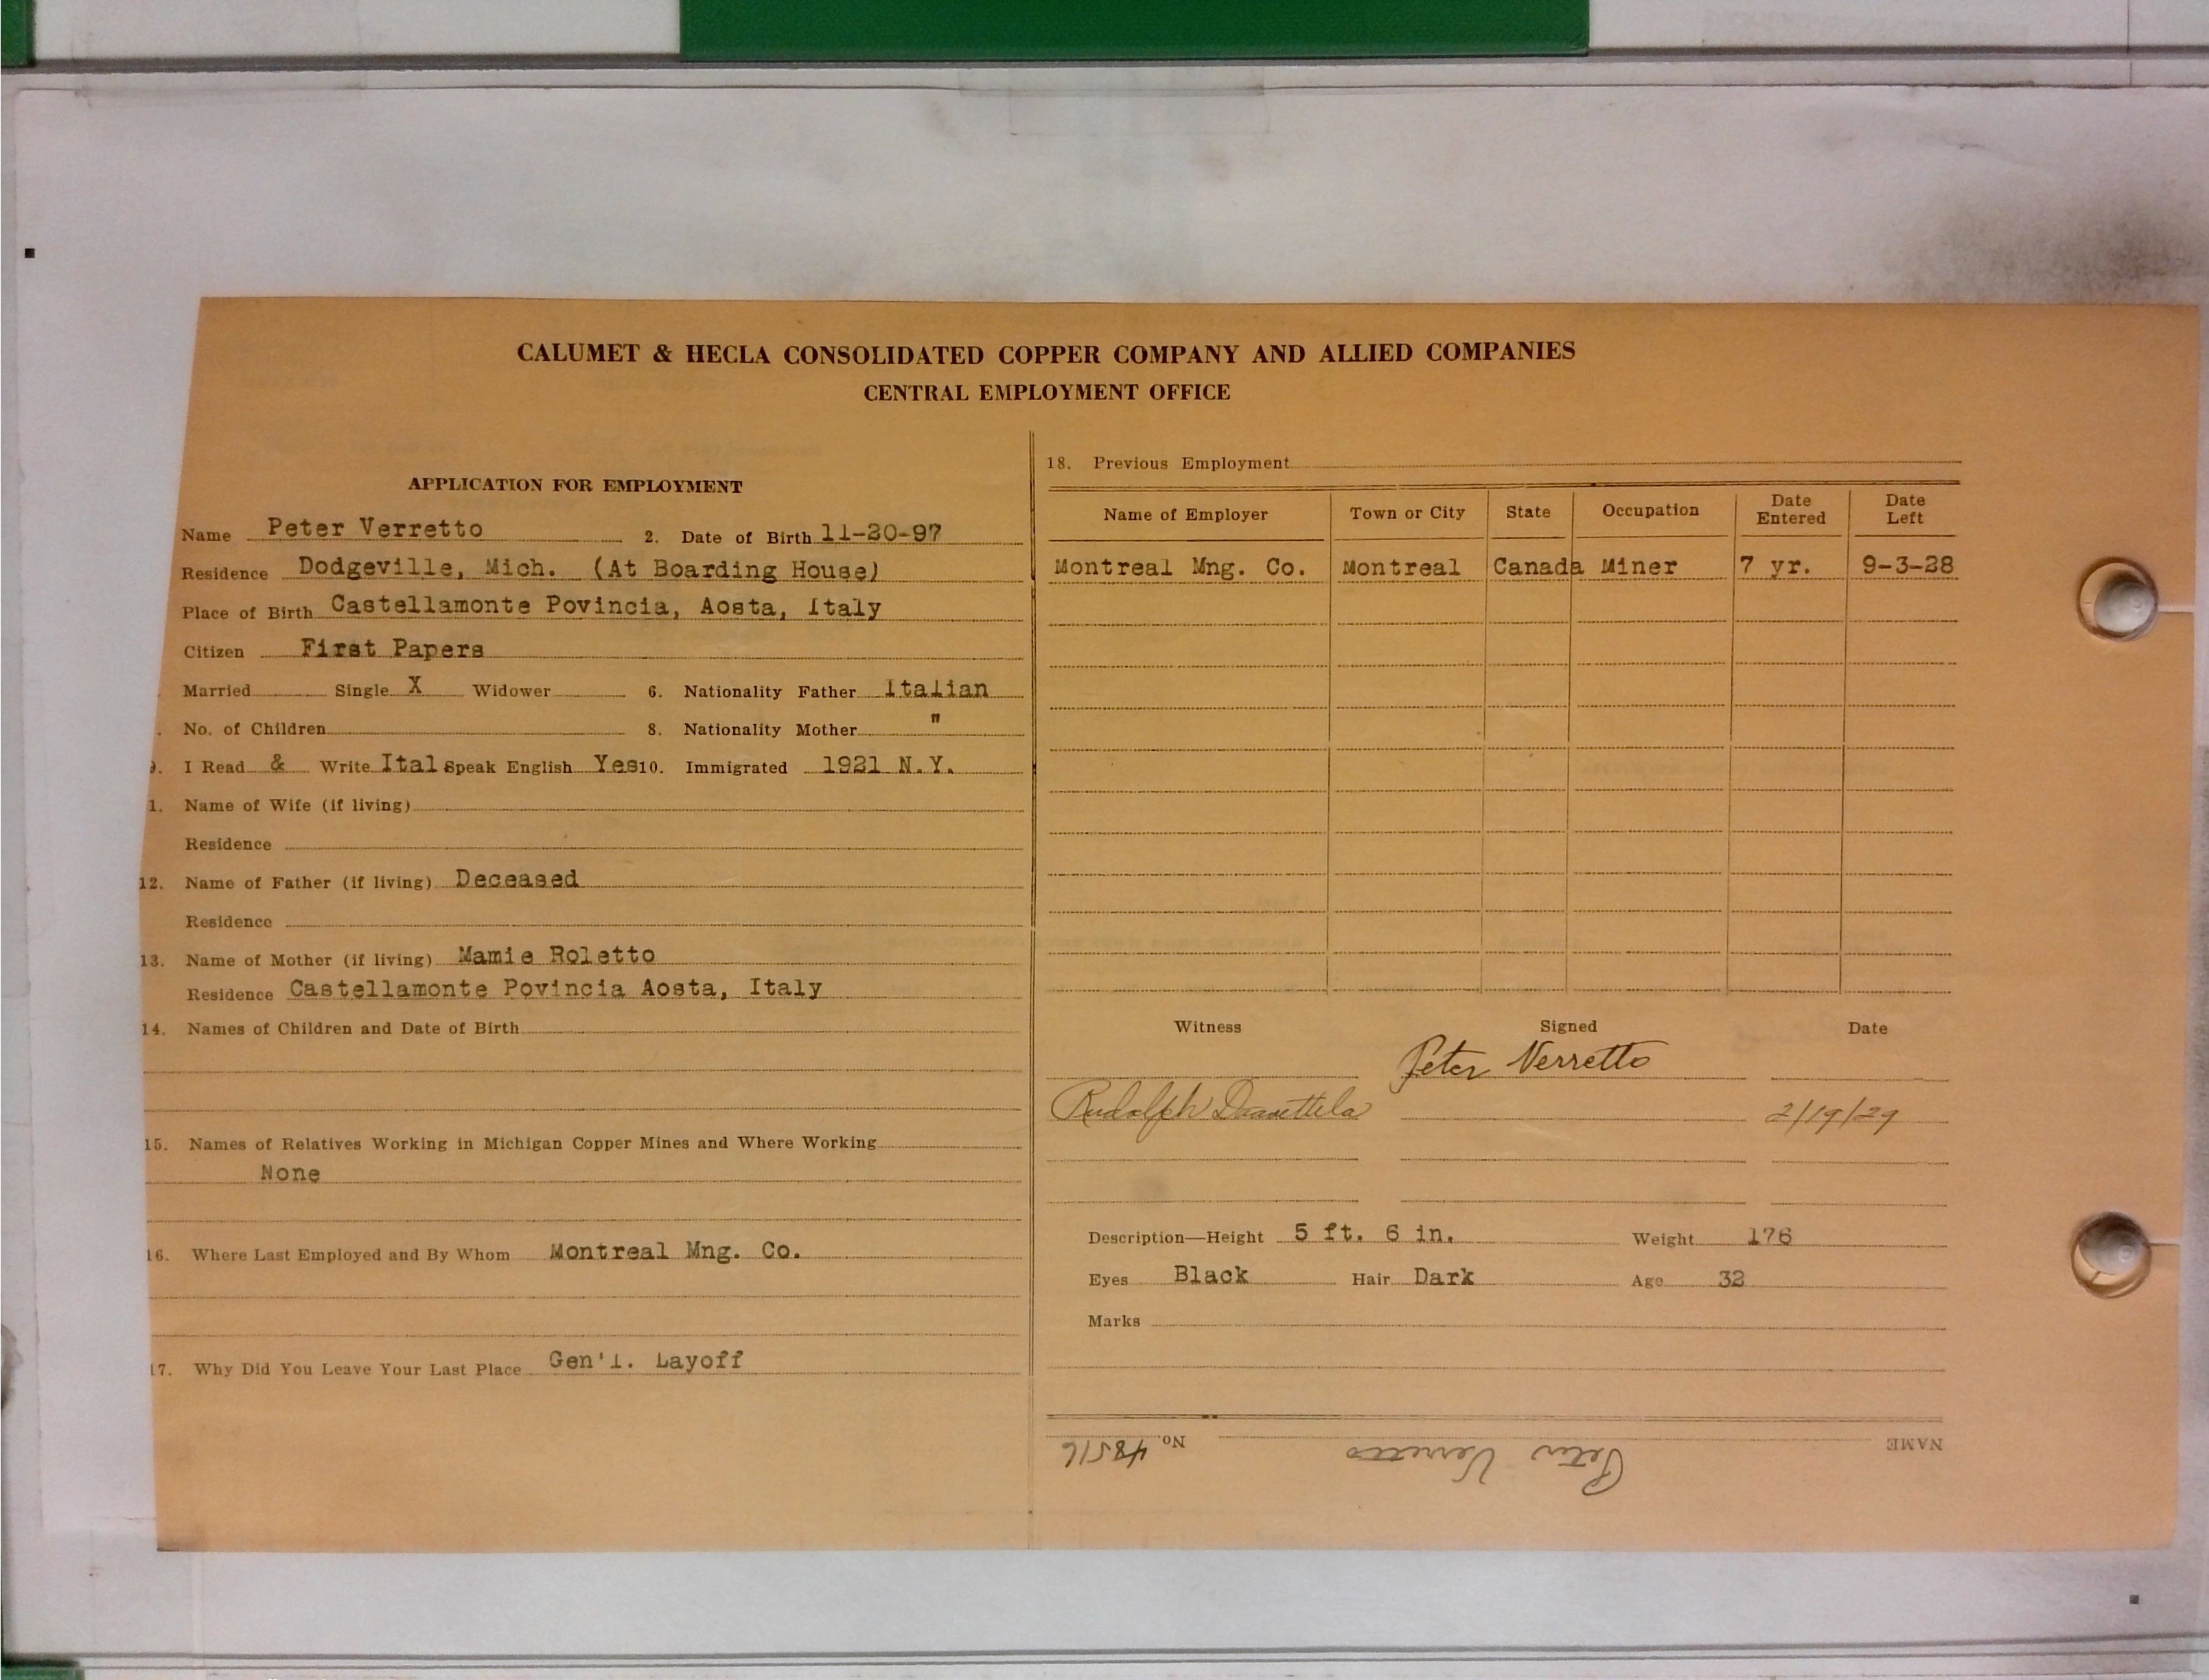 CALUMET & HECLA CONSOLIDATED COPPER COMPANY AND ALLIED COMPANIES
CENTRAL EMPLOYMENT OFFICE
APPLICATION FOR EMPLOYMENT
Name Peter Verretto 2. Date of Birth 11-20-97
Residence Dodgeville, Mich. (At Boarding House)
Place of Birth Castellamonte Povincia, Aosta, Italy
Citizen First Papers
Married Single X Widower 6. Nationality Father Italian
No. of Children 8. Nationality Mother "
9. I Read & Write Ital Speak English Yes 10. Immigrated 1921 N.Y.
1. Name of Wife (if living)
Residence
12. Name of Father (if living) Deceased
Residence
13. Name of Mother (if living) Mamie Roletto
Residence Castellamonte Povincia Aosta, Italy
14. Names of Children and Date of Birth
15. Names of Relatives Working in Michigan Copper Mines and Where Working
None
16. Where Last Employed and By Whom Montreal Mng. Co.
17. Why Did You Leave Your Last Place Gen'l. Layoff
18. Previous Employment
Name of Employer Town or City State Occupation Date Entered Date Left
Montreal Mng. Co. Montreal Canada Miner 7 yr. 9-3-28
Witness Signed Date
Peter Verretto
Rudolph 2/19/29
Description—Height 5 ft. 6 in. Weight 176
Eyes Black Hair Dark Age 32
Marks
NAME Peter Verretto No. 48516